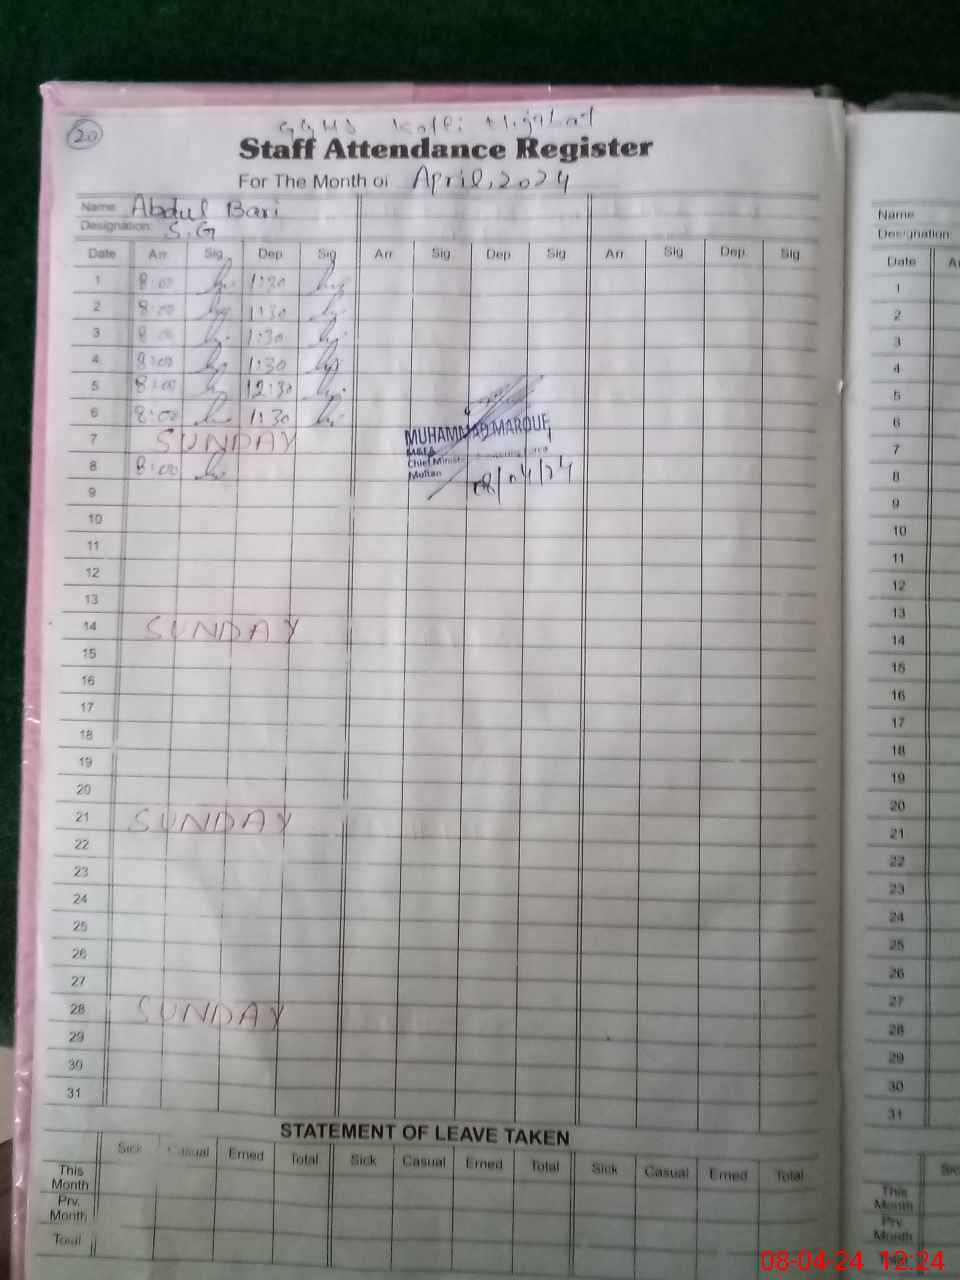 20
GGHS Kotli
Staff Attendance Register
For The Month of April, 2024
Name Abdul Bari
Designation: S.G
Date Arr Sig Dep Sig Arr Sig Dep Sig Arr Sig Dep Sig
1 8:00 1:30
2 8:00 1:30
3 8:00 1:30
4 8:00 1:30
5 8:00 12:30
6 8:00 1:30
7 SUNDAY
8 8:00
MUHAMMAD MAROUF
MEA
Chief Minister Monitoring Force
Multan
08/04/24
9
10
11
12
13
14 SUNDAY
15
16
17
18
19
20
21 SUNDAY
22
23
24
25
26
27
28 SUNDAY
29
30
31
STATEMENT OF LEAVE TAKEN
Sick Casual Erned Total Sick Casual Erned Total Sick Casual Erned Total
This Month
Prv. Month
Total
Name
Designation
Date
1
2
3
4
5
6
7
8
9
10
11
12
13
14
15
16
17
18
19
20
21
22
23
24
25
26
27
28
29
30
31
This Month
Prv. Month
08-04-24 12:24